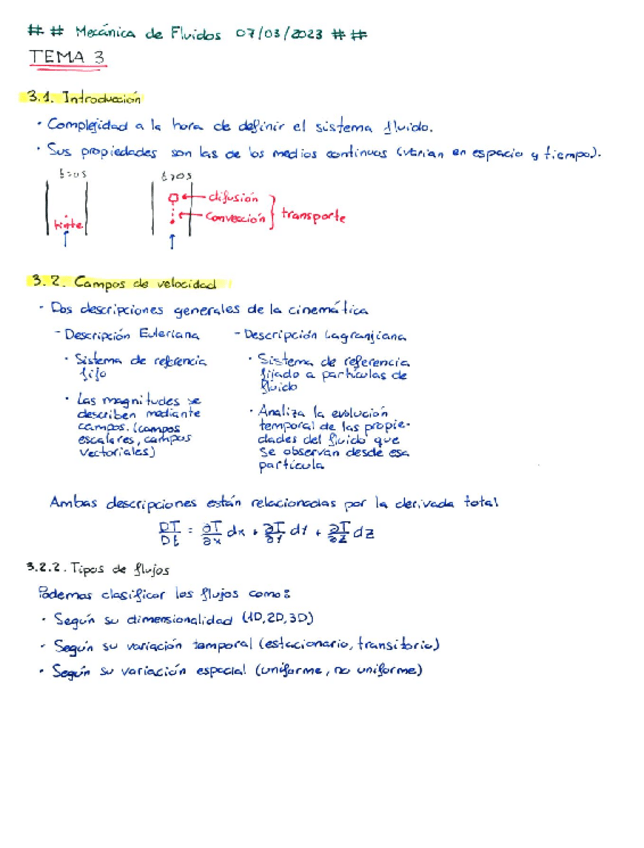 ## Mecánica de Fluidos 07/03/2023 ##
TEMA 3
3.1. Introducción
· Complejidad a la hora de definir el sistema fluido.
· Sus propiedades son las de los medios continuos (varían en espacio y tiempo).
t=0s
t>0s
tinte
difusión
convección
transporte
3.2. Campos de velocidad
· Dos descripciones generales de la cinemática
- Descripción Euleriana
· Sistema de referencia
fijo
· Las magnitudes se
describen mediante
campos. (campos
escalares, campos
vectoriales)
- Descripción Lagranjiana
· Sistema de referencia
fijado a partículas de
fluido
· Analiza la evolución
temporal de las propie-
dades del fluido que
se observan desde esa
partícula
Ambas descripciones están relacionadas por la derivada total
DT/Dt = ∂T/∂x dx + ∂T/∂y dy + ∂T/∂z dz
3.2.2. Tipos de flujos
Podemos clasificar los flujos como:
· Según su dimensionalidad (1D, 2D, 3D)
· Según su variación temporal (estacionario, transitorio)
· Según su variación espacial (uniforme, no uniforme)